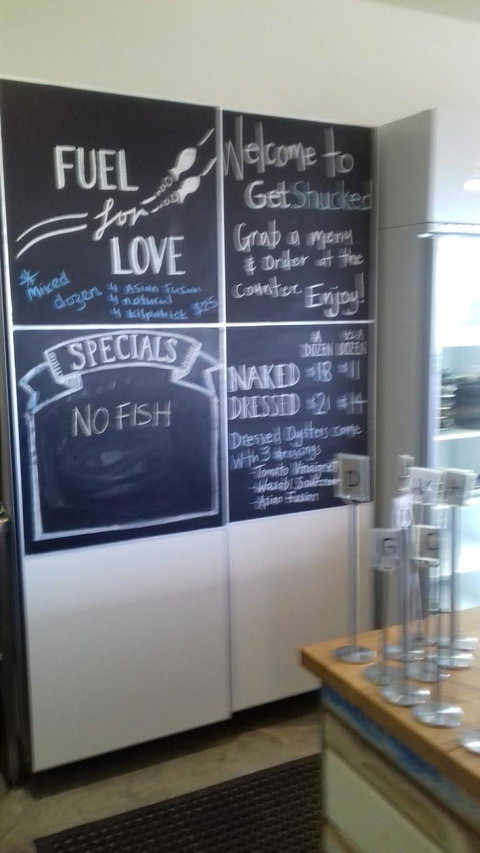 FUEL
for
LOVE
Mixed
dozen
4 Asian Fusion
4 natural
4 Kilpatrick $25
Welcome to
Get Shucked
Grab a menu
& Order at the
Counter. Enjoy!
SPECIALS
NO FISH
A DOZEN 1/2 A DOZEN
NAKED $18 $11
DRESSED $21 $14
Dressed Oysters come
With 3 dressings
- Tomato
- Wasabi
- Asian Fusion
D
G